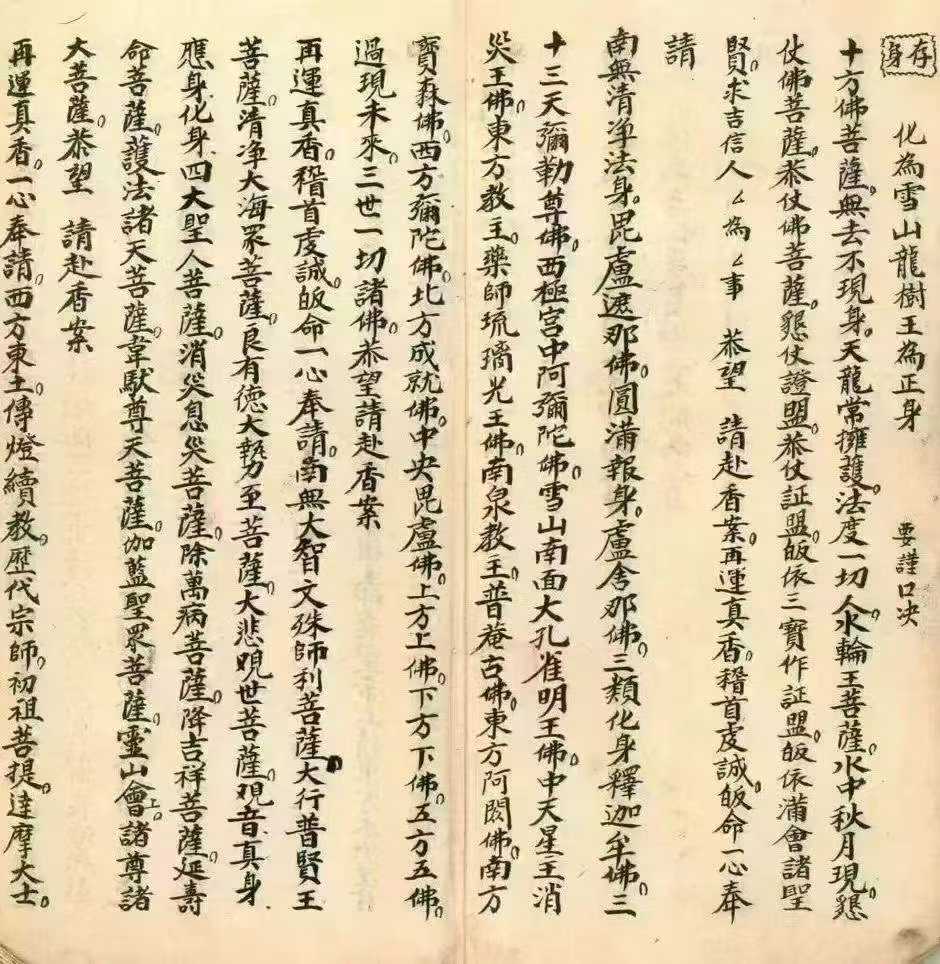 存身 化為雪山龍樹王為正身 要謹口决
十方佛菩薩。無去不現身。天龍常擁護。法度一切人。水輪王菩薩。水中秋月現。懇
仗佛菩薩。恭仗佛菩薩。懇仗證盟。恭仗証盟。皈依三寶作証盟。皈依蒲會諸聖
賢。求吉信人ム為ム事 恭望 請赴香案。再運真香。稽首虔誠。皈命一心奉
請
南無清净法身。毘盧遮那佛。圓滿報身。盧舍那佛。三類化身釋迦牟佛。三
十三天彌勒尊佛。西極宮中阿彌陀佛。雪山南面大孔雀明王佛。中天星主消
災王佛。東方教主。藥師琉璃光王佛。南泉教主。普菴古佛。東方阿閦佛。南方
寶森佛。西方彌陀佛。北方成就佛。中央毘盧佛。上方上佛。下方下佛。五方五佛。
過現未來。三世一切諸佛。恭望請赴香案
再運真香。稽首虔誠。皈命一心奉請。南無大智文殊師利菩薩。大行普賢王
菩薩。清净大海眾菩薩。良有德大勢至菩薩。大悲覌世菩薩。观音真身
應身化身。四大聖人菩薩。消災息災菩薩。除萬病菩薩。降吉祥菩薩。延壽
命菩薩。護法諸天菩薩。韋馱尊天菩薩。伽藍聖眾菩薩。靈山會上。諸尊諸
大菩薩。恭望 請赴香案
再運真香。一心奉請。西方東土。傳燈續教。歷代宗師。初祖菩提。達摩大士。